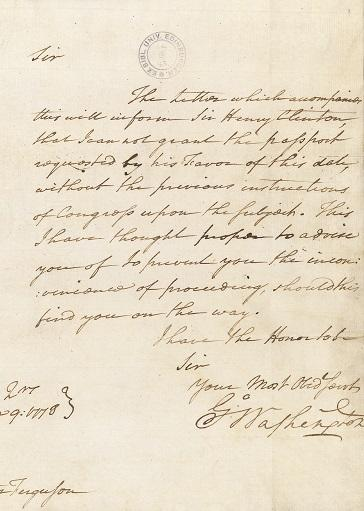 Sir
EX BIBL. UNIV. EDINBURGEN.
The Letter which accompanies
this will inform Sir Henry Clinton
that I can not grant the passport
requested by his Favor of this date,
without the previous instructions
of Congress upon the subject. This
I have thought proper to advise
you of to prevent you the incon:
:venience of proceeding, should this
find you on the way.
I have the Honor to be
Sir
Your Most Obed. Servt
Go Washington
2rs
9: 1778 }
Ferguson